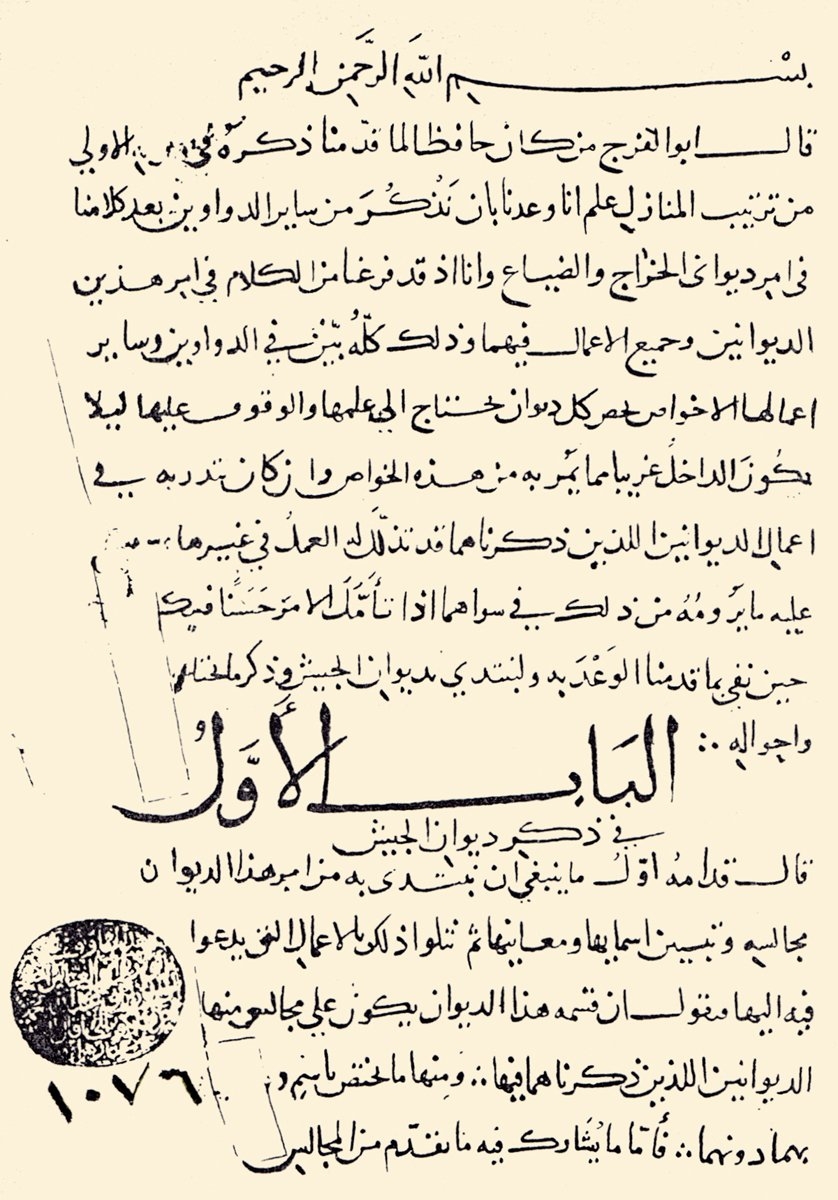 بسم الله الرحمن الرحيم
قال ابو الفرج من كان حافظا لما قدمنا ذكره في الاولي
من ترتيب المنازل علم انا وعدنا بان نَذْكُرَ من ساير الدواوين بعد كلامنا
في امر ديوانى الخراج والضياع وانا اذ قد فرغنا من الكلام في امر هذين
الديوانين وجميع الاعمال فيهما وذلك كلّهُ بيّن في الدواوين وساير
اعمالها الا خواص تخص كل ديوان نحتاج الي علمها والوقوف عليها ليلا
يكونَ الداخلُ غريبا مما يمُر به من هذه الخواص وان كان تدربه في
اعمال الديوانين اللذين ذكرناهما قد تذلّل له العملُ في غيرها
عليه ما يَرُومُهُ من ذلك في سواهما اذا تأمَّلَ الامرَ حَسَنًا
حين نفي بما قدمنا الوَعْدَ به ولنبتدي بديوان الجيش وذكر
واحواله
البَابُ الأَوَّلُ
في ذكر ديوان الجيش
قال قدامهُ اوّلُ ما ينبغي ان نبتدى به من امر هذا الديوان
مجالسه وتبيين اسمايها ومعانيها ثم نتلوا ذلك بالاعمال التي يدعوا
فيه اليها فنقول ان قسمه هذا الديوان يكون علي مجالس منها
الديوانين اللذين ذكرناهما فيها ومنها ما يختص باسم و
بهما دونهما فأمّا ما يُشَارك فيه ما تقدّم من المجالس
١٠٧٦